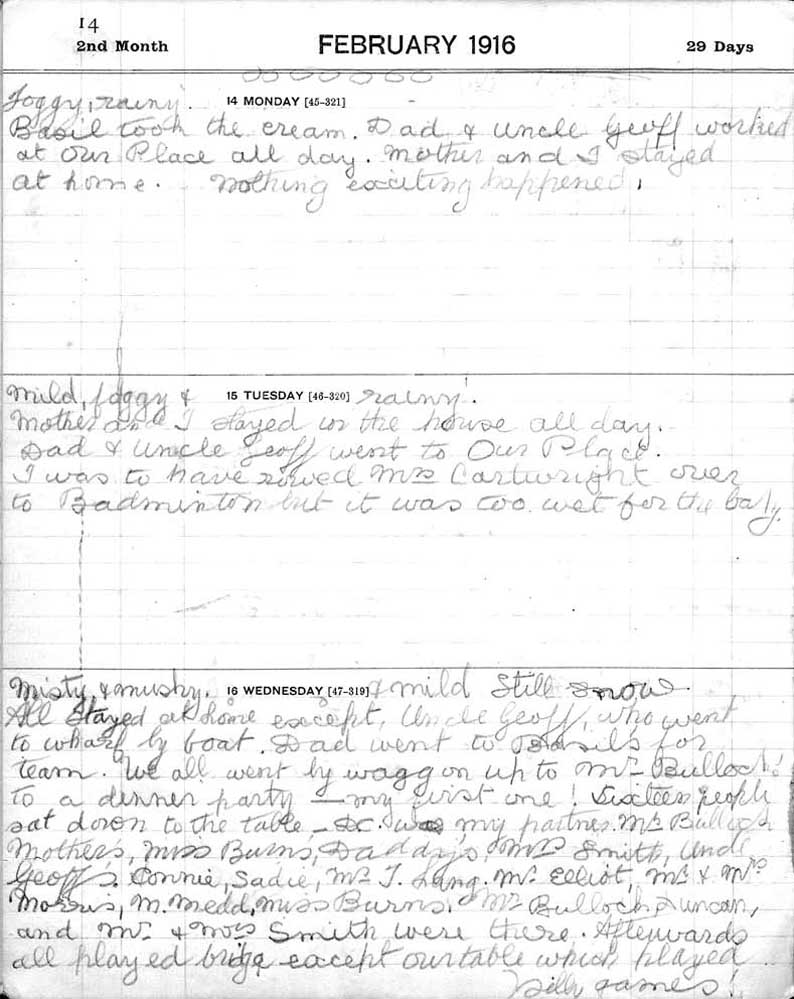 14
2nd Month FEBRUARY 1916 29 Days
Foggy, rainy. 14 MONDAY [45-321]
Basil took the cream. Dad & Uncle Geoff worked
at Our Place all day. Mother and I stayed
at home. Nothing exciting happened.
Mild, foggy & 15 TUESDAY [46-320] rainy.
Mother and I stayed in the house all day.
Dad & Uncle Geoff went to Our Place.
I was to have rowed Mrs Cartwright over
to Badminton but it was too wet for the baby.
Misty, & mushy. 16 WEDNESDAY [47-319] & mild Still snow.
All stayed at home except, Uncle Geoff, who went
to wharf by boat. Dad went to Basil's for
team. We all went by waggon up to Mr Bullock's
to a dinner party — my first one! Sixteen people
sat down to the table — was my partner. Mr Bullock
Mother's, Miss Burns, Daddy's, Mrs Smith, Uncle
Geoff's. Connie, Sadie, Mr T. Lang. Mr Elliot, Mr & Mrs
Morris, M. Medd, Miss Burns, Mr Bullock, Duncan,
and Mr & Mrs Smith were there. Afterwards
all played bridge except our table which played
silly games!